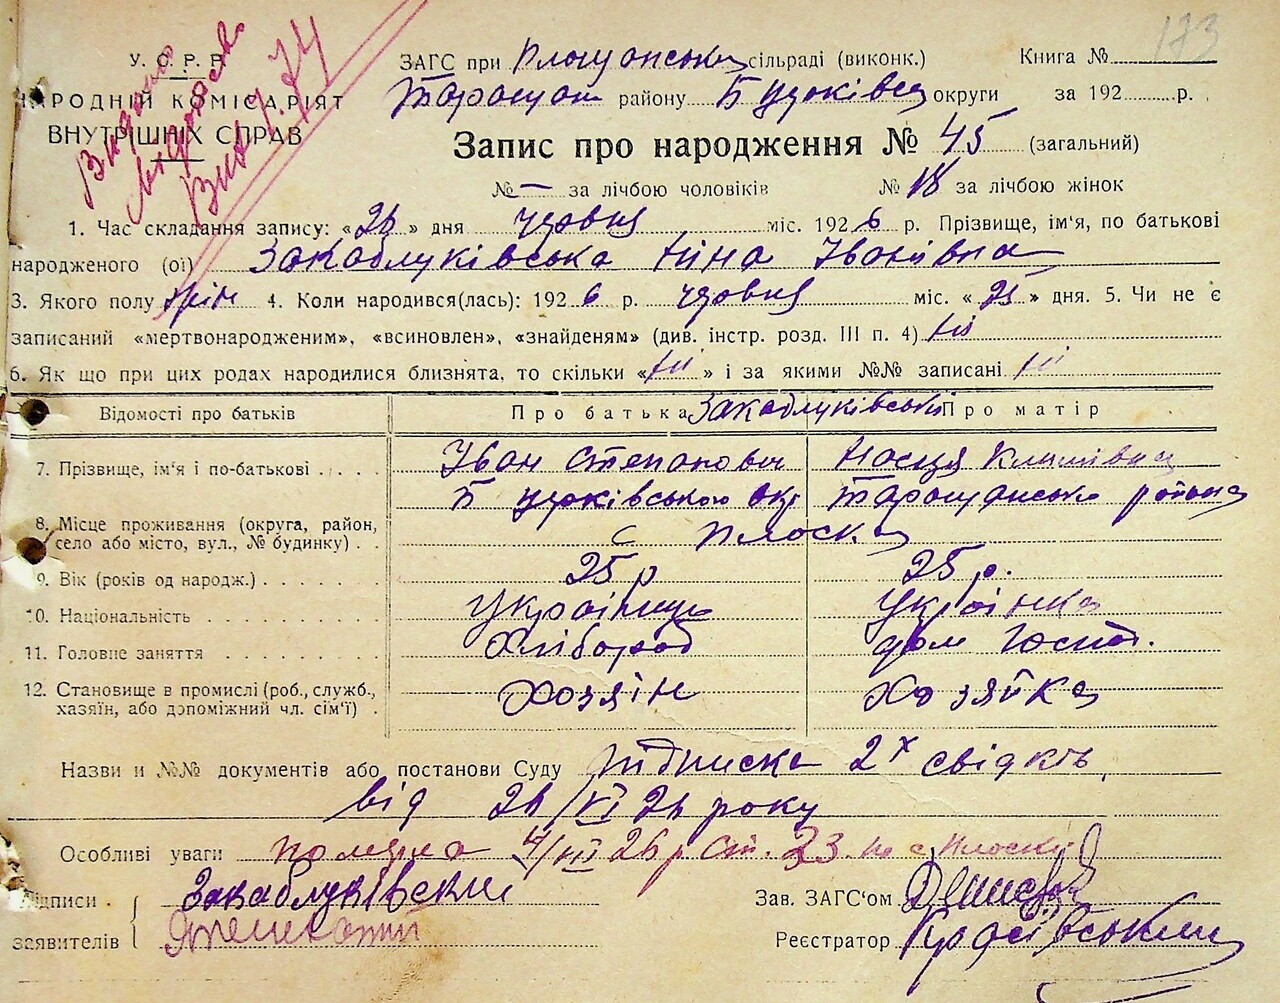 173
У. С. Р. Р.
НАРОДНІЙ КОМІСАРІЯТ
ВНУТРІШНІХ СПРАВ
Видано
ЗАГС при сільраді (виконк.)
району округи
Книга №
за 192 р.
Запис про народження № 45 (загальний)
№ — за лічбою чоловіків № 18 за лічбою жінок
1. Час складання запису: «26» дня червня міс. 1926 р. Прізвище, ім'я, по батькові
народженого (ої) Закаблуківська Ніна Іванівна
3. Якого полу жін 4. Коли народився(лась): 1926 р. червня міс. «25» дня. 5. Чи не є
записаний «мертвонародженим», «всиновлен», «знайденям» (див. інстр. розд. III п. 4) ні
6. Як що при цих родах народилися близнята, то скільки «ні» і за якими №№ записані ні
Відомості про батьків Про батька Закаблуківські Про матір
7. Прізвище, ім'я і по-батькові Іван Степанович Настя Климівна
8. Місце проживання (округа, район, село або місто, вул., № будинку) Б Церківською окр Таращанського района
с Плоска
9. Вік (років од народж.) 25 р 25 р.
10. Національність Українець Українка
11. Головне заняття Хлібороб дом Госпо.
12. Становище в промислі (роб., служб., Хозяін Хозяйка
хазяїн, або допоміжний чл. сім'ї)
Назви и №№ документів або постанови Суду підписка 2х свідків
від 26/VI 26 року
Особливі уваги померла 26 р ст. 23 по с Плоский
Підписи Закаблуківский Зав. ЗАГС'ом
заявителів Реєстратор